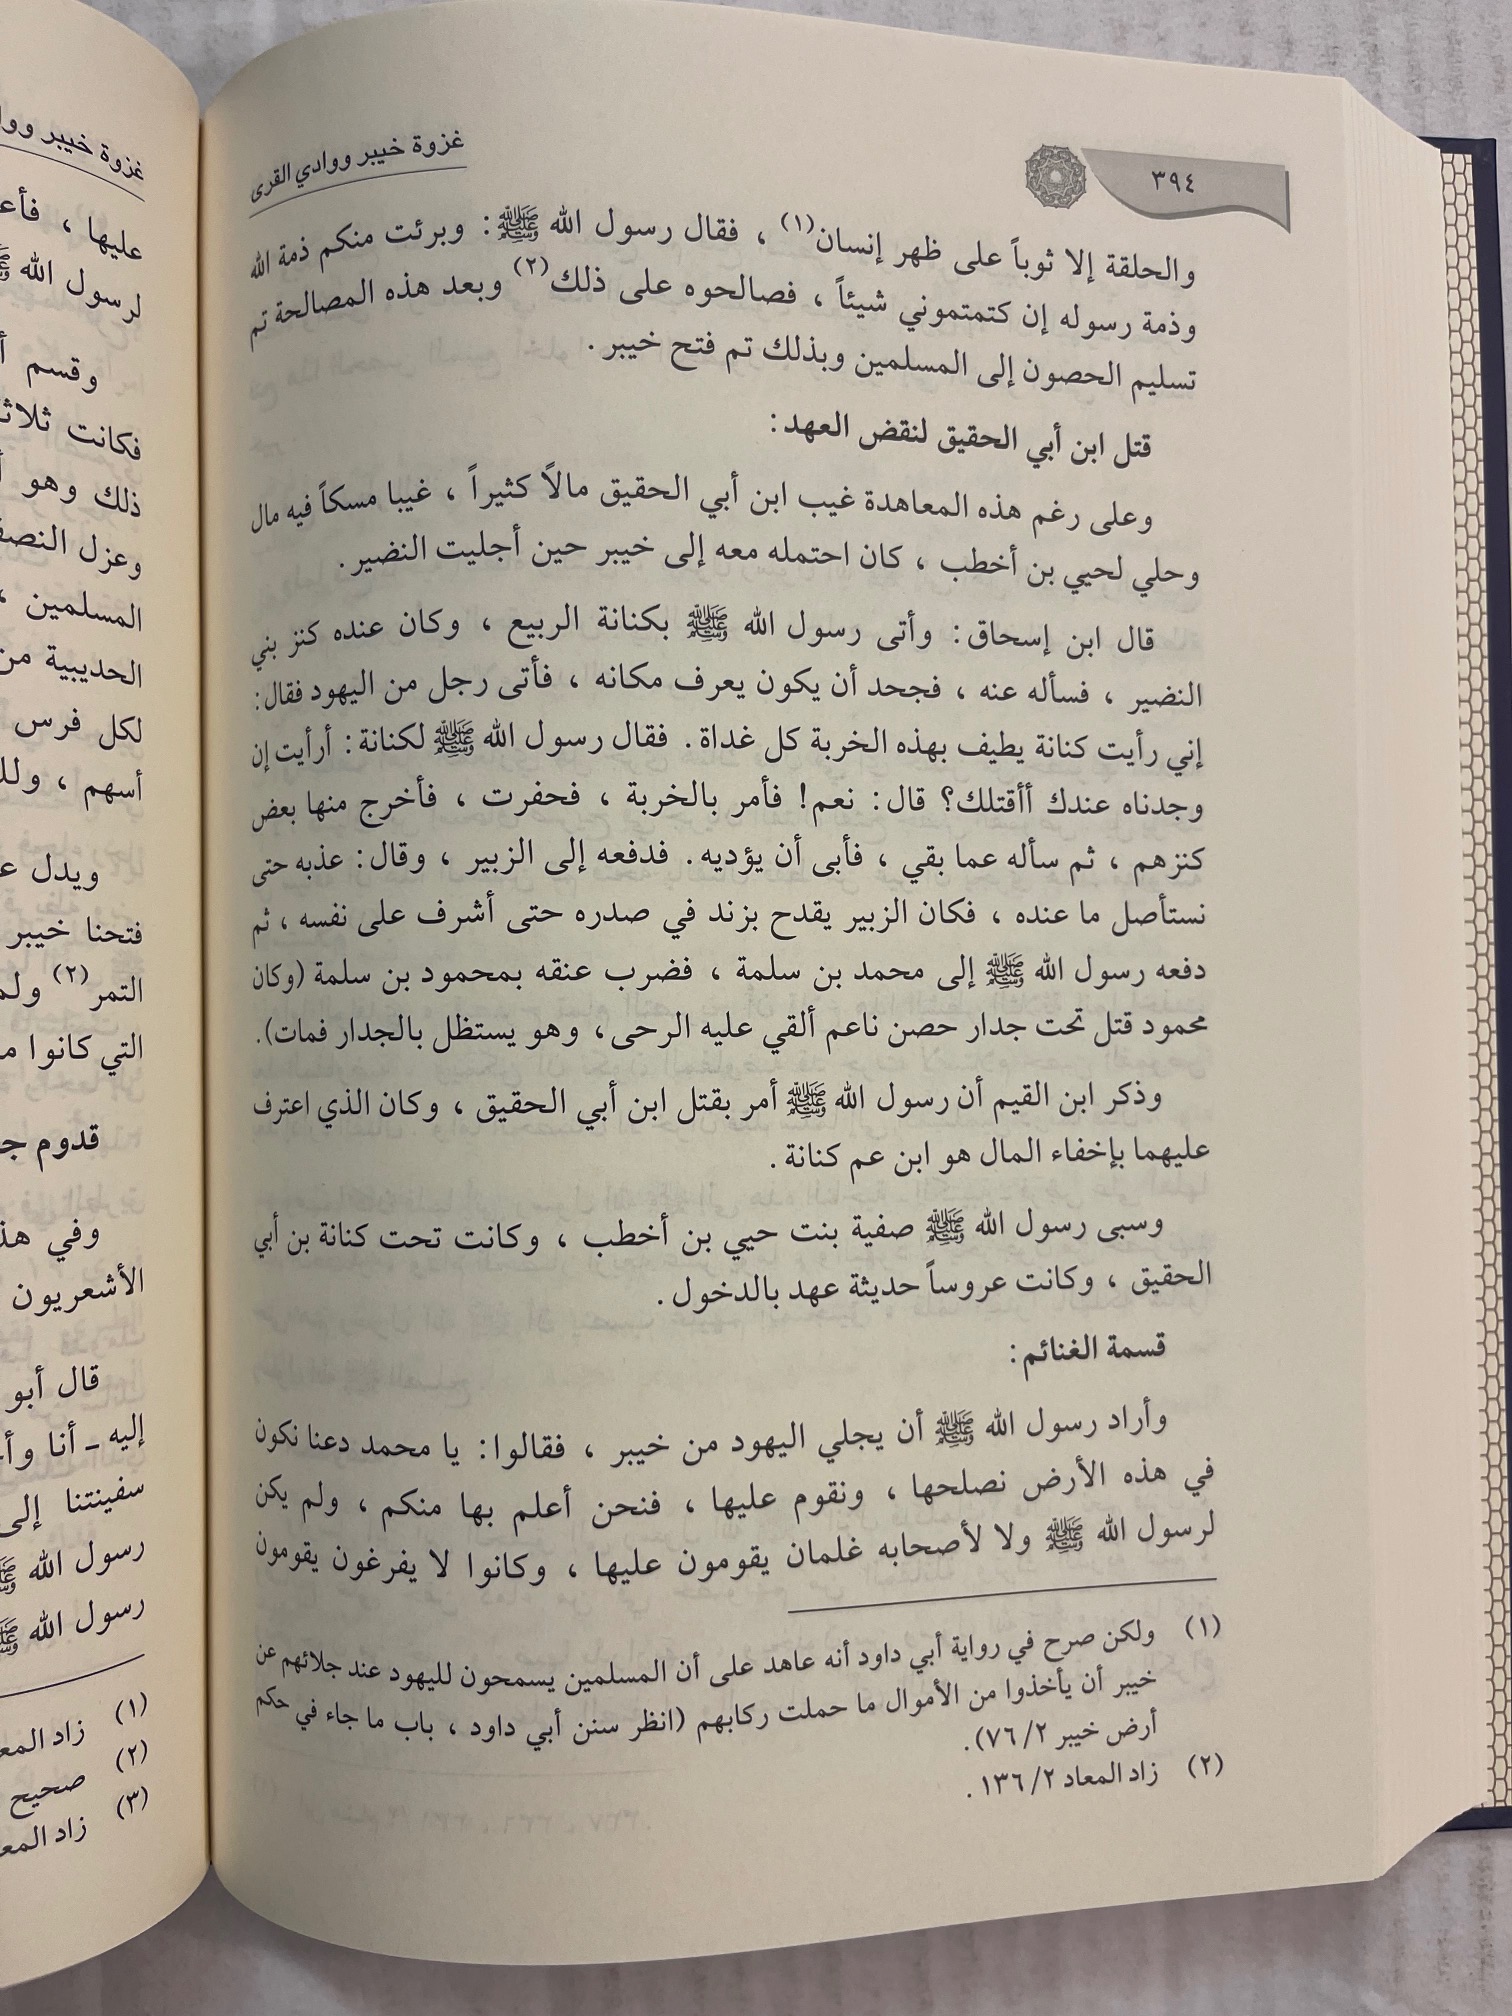 ٣٩٤
غزوة خيبر ووادي القرى
والحلقة إلا ثوباً على ظهر إنسان(١) ، فقال رسول الله ﷺ: وبرئت منكم ذمة الله
وذمة رسوله إن كتمتموني شيئاً ، فصالحوه على ذلك(٢) وبعد هذه المصالحة تم
تسليم الحصون إلى المسلمين وبذلك تم فتح خيبر .
قتل ابن أبي الحقيق لنقض العهد:
وعلى رغم هذه المعاهدة غيب ابن أبي الحقيق مالاً كثيراً ، غيبا مسكاً فيه مال
وحلي لحيي بن أخطب ، كان احتمله معه إلى خيبر حين أجليت النضير.
قال ابن إسحاق: وأتى رسول الله ﷺ بكنانة الربيع ، وكان عنده كنز بني
النضير ، فسأله عنه ، فجحد أن يكون يعرف مكانه ، فأتى رجل من اليهود فقال:
إني رأيت كنانة يطيف بهذه الخربة كل غداة. فقال رسول الله ﷺ لكنانة: أرأيت إن
وجدناه عندك أأقتلك؟ قال: نعم! فأمر بالخربة ، فحفرت ، فأخرج منها بعض
كنزهم ، ثم سأله عما بقي ، فأبى أن يؤديه. فدفعه إلى الزبير ، وقال: عذبه حتى
نستأصل ما عنده ، فكان الزبير يقدح بزند في صدره حتى أشرف على نفسه ، ثم
دفعه رسول الله ﷺ إلى محمد بن سلمة ، فضرب عنقه بمحمود بن سلمة (وكان
محمود قتل تحت جدار حصن ناعم ألقي عليه الرحى، وهو يستظل بالجدار فمات).
وذكر ابن القيم أن رسول الله ﷺ أمر بقتل ابن أبي الحقيق ، وكان الذي اعترف
عليهما بإخفاء المال هو ابن عم كنانة .
وسبى رسول الله ﷺ صفية بنت حيي بن أخطب ، وكانت تحت كنانة بن أبي
الحقيق ، وكانت عروساً حديثة عهد بالدخول .
قسمة الغنائم:
وأراد رسول الله ﷺ أن يجلي اليهود من خيبر ، فقالوا: يا محمد دعنا نكون
في هذه الأرض نصلحها ، ونقوم عليها ، فنحن أعلم بها منكم ، ولم يكن
لرسول الله ﷺ ولا لأصحابه غلمان يقومون عليها ، وكانوا لا يفرغون يقومون
(١) ولكن صرح في رواية أبي داود أنه عاهد على أن المسلمين يسمحون لليهود عند جلائهم عن
خيبر أن يأخذوا من الأموال ما حملت ركابهم (انظر سنن أبي داود ، باب ما جاء في حكم
أرض خيبر ٢/ ٧٦).
(٢) زاد المعاد ٢/ ١٣٦ .
غزوة خيبر
عليها ،
لرسول الله
وقسم
فكانت
ذلك وهو
وعزل
المسلمين ،
الحديبية
لكل فرس
أسهم ،
ويدل
فتحنا خيبر
التمر(٢)
التي كانوا
قدوم
وفي
الأشعريون
قال أبو
إليه - أنا
سفينتنا إلى
رسول الله ﷺ
رسول الله ﷺ
(١) زاد
(٢) صحيح
(٣) زاد